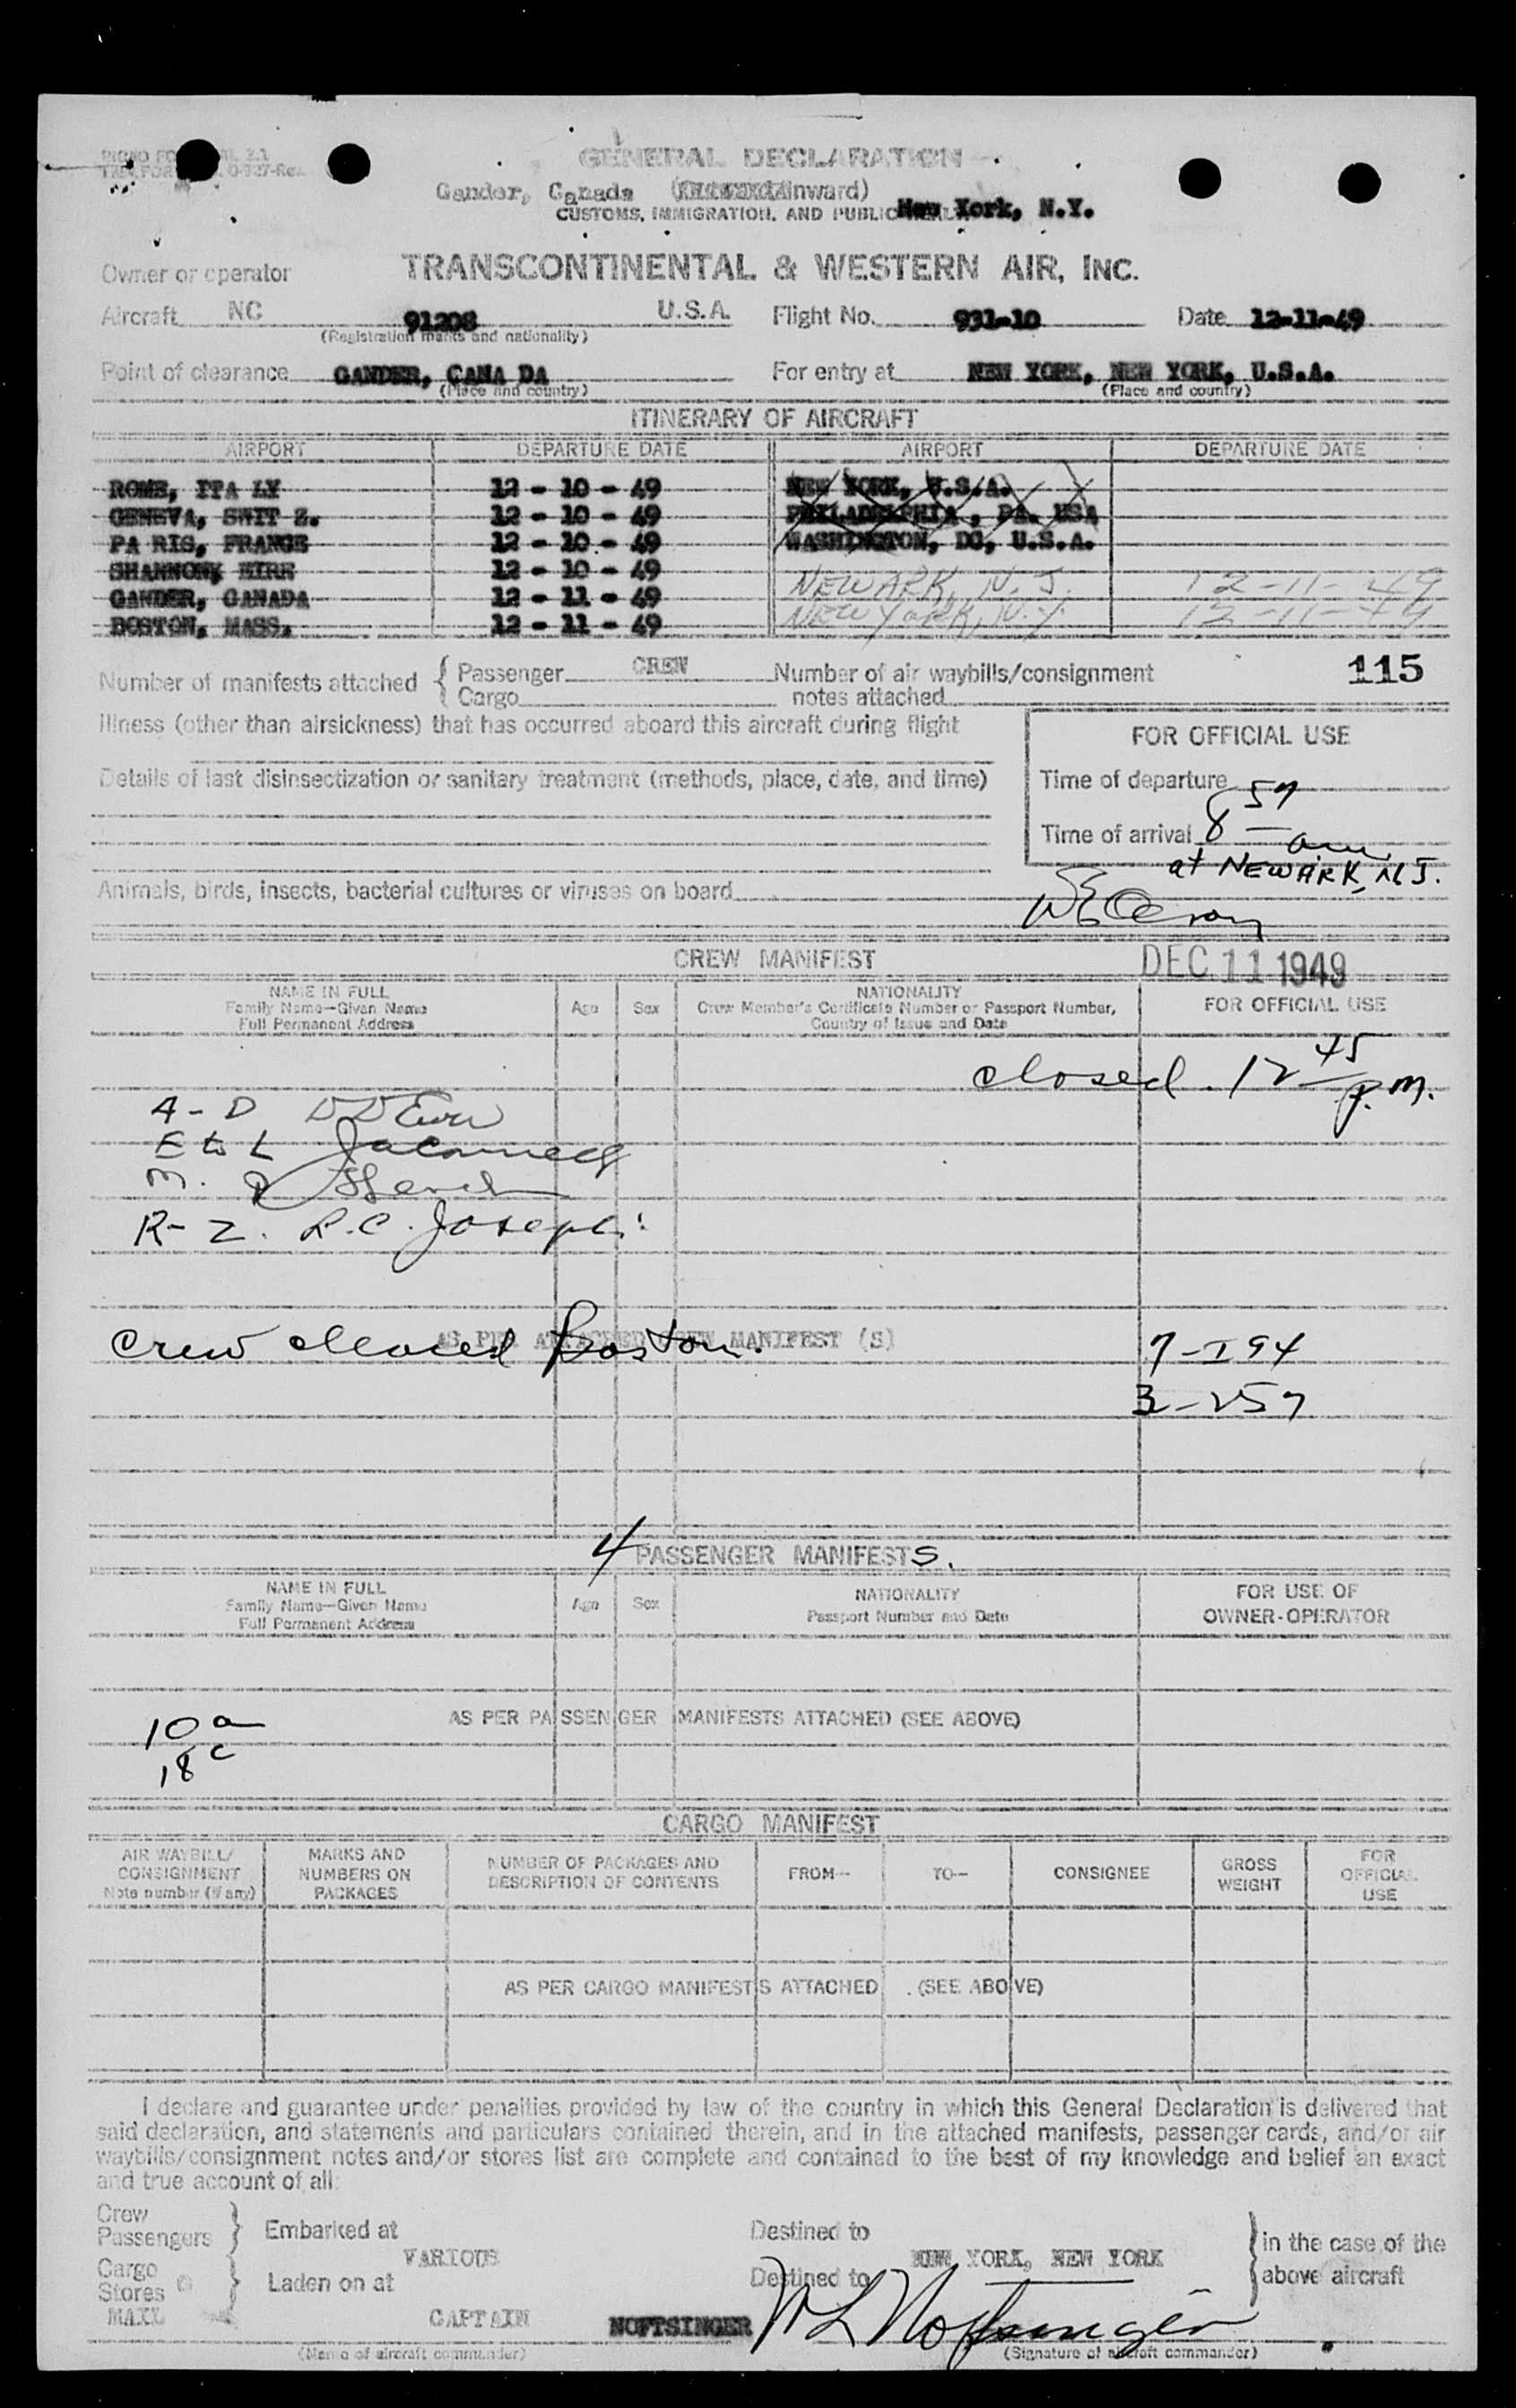 GENERAL DECLARATION
Gander, Canada (Inward) New York, N.Y.
CUSTOMS, IMMIGRATION, AND PUBLIC
Owner or operator TRANSCONTINENTAL & WESTERN AIR, INC.
Aircraft NC 91208 U.S.A. Flight No. 931-10 Date 12-11-49
(Registration marks and nationality)
Point of clearance GANDER, CANA DA For entry at NEW YORK, NEW YORK, U.S.A.
(Place and country) (Place and country)
ITINERARY OF AIRCRAFT
AIRPORT DEPARTURE DATE AIRPORT DEPARTURE DATE
ROME, ITA LY 12 - 10 - 49 NEW YORK, U.S.A.
GENEVA, SWIT Z. 12 - 10 - 49 PHILADELPHIA, PA. USA
PA RIS, FRANCE 12 - 10 - 49 WASHINGTON, DC, U.S.A.
SHANNON, EIRE 12 - 10 - 49 NEWARK, N.J. 12-11-49
GANDER, CANADA 12 - 11 - 49 NEW YORK, N.Y. 12-11-49
BOSTON, MASS. 12 - 11 - 49
Number of manifests attached { Passenger CREW Number of air waybills/consignment 115
Cargo notes attached
Illness (other than airsickness) that has occurred aboard this aircraft during flight
FOR OFFICIAL USE
Details of last disinsectization or sanitary treatment (methods, place, date, and time)
Time of departure
Time of arrival 8 57 am
at NEWARK, N.J.
Animals, birds, insects, bacterial cultures or viruses on board
CREW MANIFEST DEC 11 1949
NAME IN FULL Age Sex NATIONALITY FOR OFFICIAL USE
Family Name—Given Name Crew Member's Certificate Number or Passport Number,
Full Permanent Address Country of Issue and Date
closed 12 45 p.m.
A - D
E to L
M.
R - Z. R.C. Joseph
AS PER ATTACHED CREW MANIFEST (S)
Crew cleared Boston. 7-I94
3-257
4 PASSENGER MANIFESTS.
NAME IN FULL Age Sex NATIONALITY FOR USE OF
Family Name—Given Name Passport Number and Date OWNER-OPERATOR
Full Permanent Address
AS PER PASSENGER MANIFESTS ATTACHED (SEE ABOVE)
10 a
18 c
CARGO MANIFEST
AIR WAYBILL/ MARKS AND NUMBER OF PACKAGES AND FROM— TO— CONSIGNEE GROSS FOR
CONSIGNMENT NUMBERS ON DESCRIPTION OF CONTENTS WEIGHT OFFICIAL
Note number (if any) PACKAGES USE
AS PER CARGO MANIFESTS ATTACHED (SEE ABOVE)
I declare and guarantee under penalties provided by law of the country in which this General Declaration is delivered that
said declaration, and statements and particulars contained therein, and in the attached manifests, passenger cards, and/or air
waybills/consignment notes and/or stores list are complete and contained to the best of my knowledge and belief an exact
and true account of all:
Crew
Passengers } Embarked at Destined to in the case of the
VARIOUS NEW YORK, NEW YORK
Cargo
Stores } Laden on at Destined to above aircraft
MAIL CAPTAIN NOFTSINGER W L Noftsinger
(Name of aircraft commander) (Signature of aircraft commander)